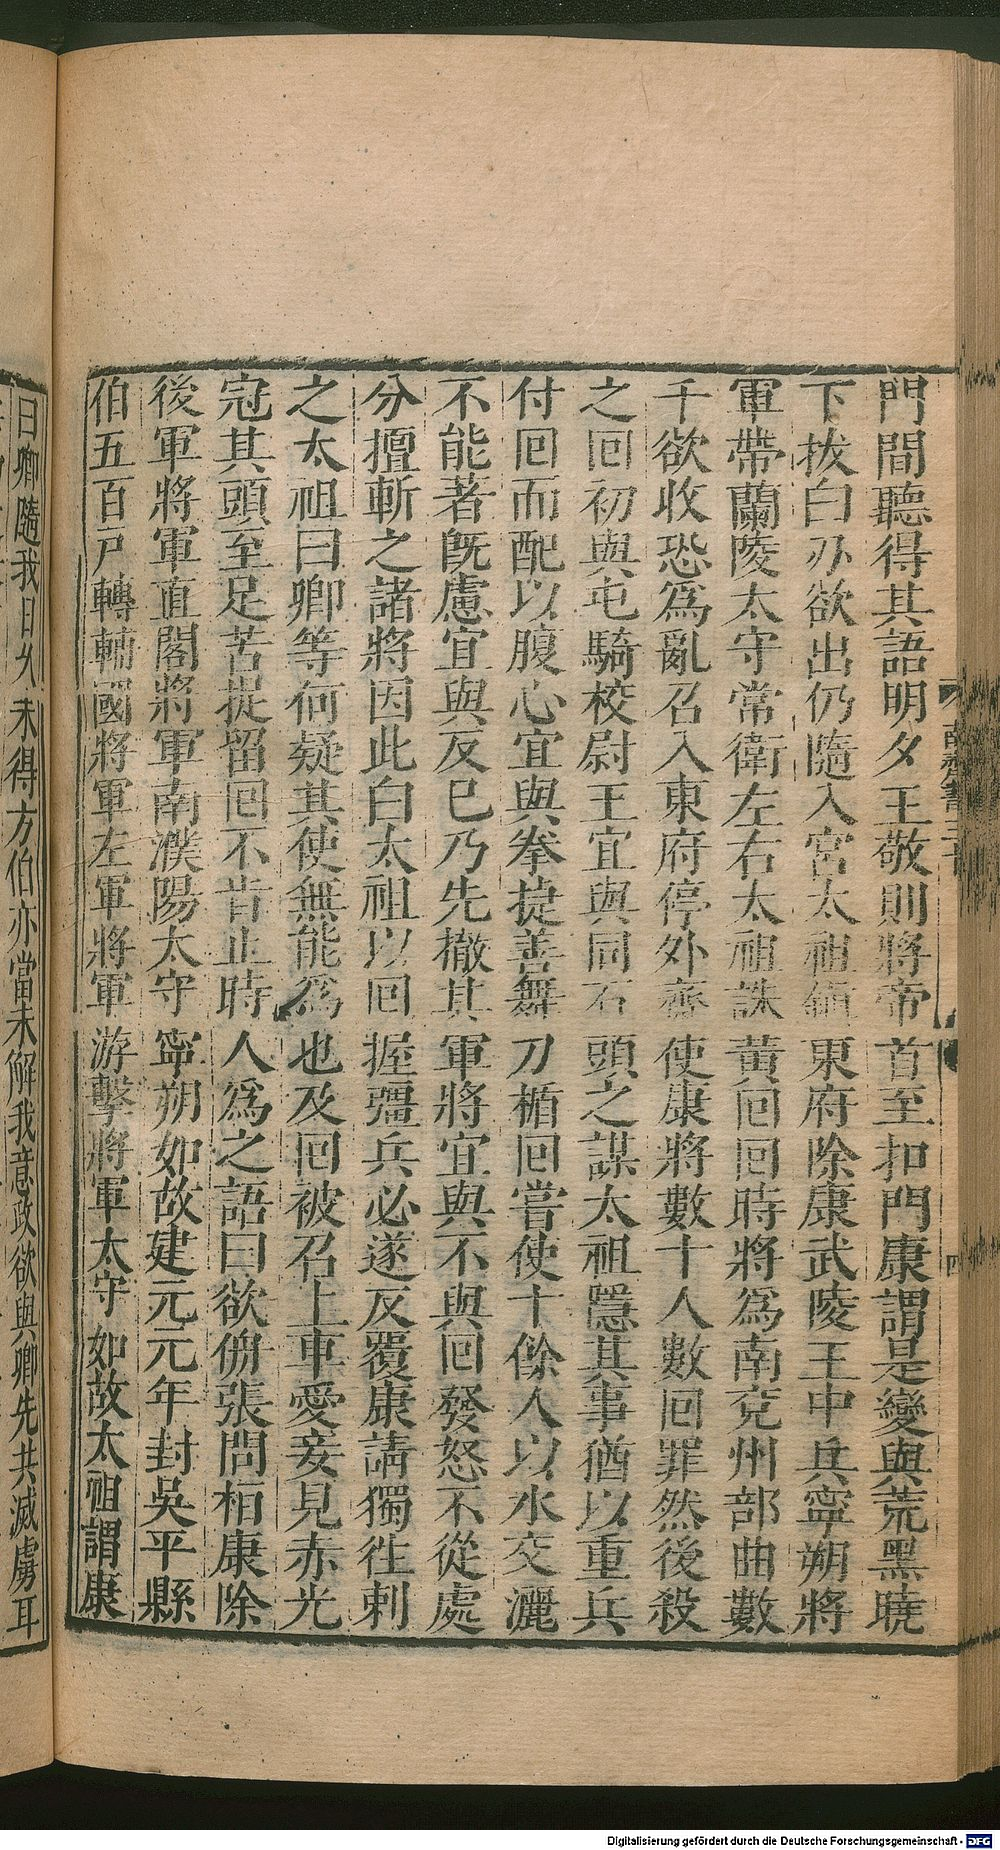 門間聽得其語明夕王敬則將帝首至扣門康謂是變與荒黑曉
下拔白刃欲出仍隨入宮太祖鎮東府除康武陵王中兵寧朔將
軍帶蘭陵太守常衛左右太祖誅黄囘囘時將爲南兗州部曲數
千欲收恐爲亂召入東府停外齋使康將數十人數囘罪然後殺
之囘初與屯騎校尉王宜與同石頭之謀太祖隱其事猶以重兵
付囘而配以腹心宜與拳捷善舞刀楯囘嘗使十餘人以水交灑
不能著旣慮宜與反巳乃先撤其軍將宜與不與囘發怒不從處
分擅斬之諸將因此白太祖以囘握彊兵必遂反覆康請獨往刺
之太祖曰卿等何疑其使無能爲也及囘被召上車愛妾見赤光
冠其頭至足苦捉留囘不肯止時人爲之語曰欲俯張問桓康除
後軍將軍直閣將軍南濮陽太守寧朔如故建元元年封吳平縣
伯五百戸轉輔國將軍左軍將軍游擊將軍太守如故太祖謂康
曰卿隨我日久未得方伯亦當未解我意政欲與卿先共滅虜耳
四
Digitalisierung gefördert durch die Deutsche Forschungsgemeinschaft - DFG